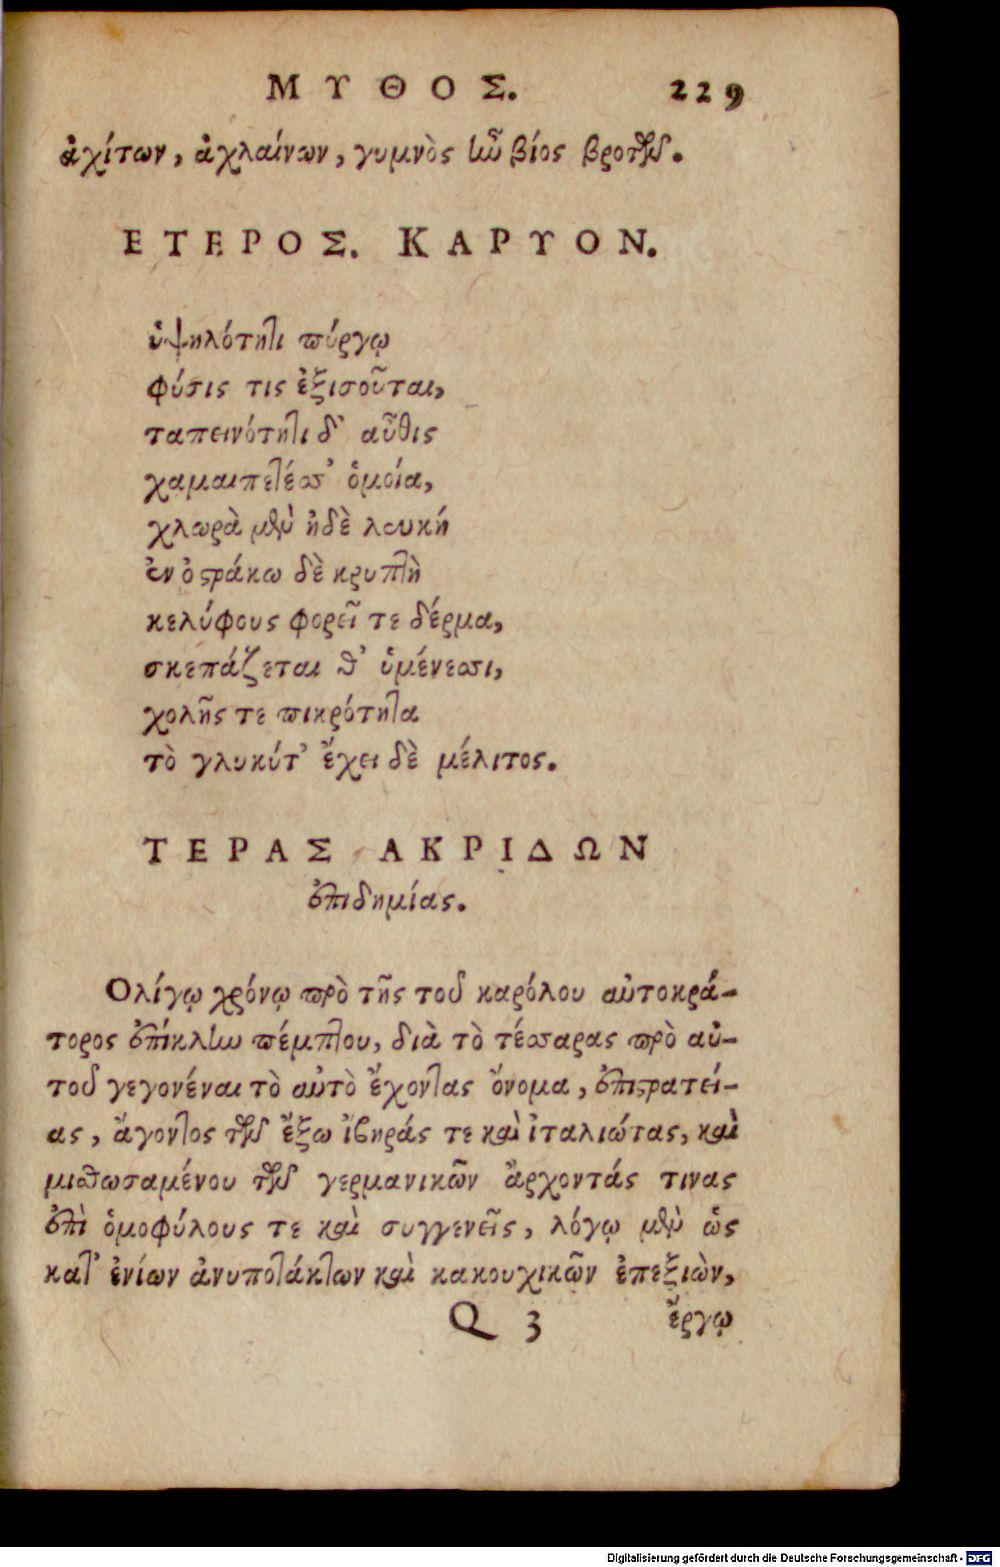 ΜΥΘΟΣ. 229
ἀχίτων, ἀχλαίνων, γυμνὸς ἦν βίος βροτῶν.
ΕΤΕΡΟΣ. ΚΑΡΥΟΝ.
ὑψηλότητι πύργῳ
φύσις τις ἐξισοῦται,
ταπεινότητι δ' αὖθις
χαμαιπετέσσ' ὁμοία,
χλωρὰ μὲν ἠδὲ λευκή
ἐν ὀστράκω δὲ κρυπτὴ
κελύφους φορεῖ τε δέρμα,
σκεπάζεται θ' ὑμένεσσι,
χολῆς τε πικρότητα
τὸ γλυκύτ' ἔχει δὲ μέλιτος.
ΤΕΡΑΣ ΑΚΡΙΔΩΝ
ἐπιδημίας.
Ολίγῳ χρόνῳ πρὸ τῆς τοῦ καρόλου αὐτοκρά-
τορος ἐπίκλην πέμπτου, διὰ τὸ τέσσαρας πρὸ αὐ-
τοῦ γεγονέναι τὸ αὐτὸ ἔχοντας ὄνομα, ἐπιστρατεί-
ας, ἄγοντος τῶν ἔξω ἰβηράς τε καὶ ἰταλιώτας, καὶ
μισθωσαμένου τῶν γερμανικῶν ἄρχοντάς τινας
ἐπὶ ὁμοφύλους τε καὶ συγγενεῖς, λόγῳ μὲν ὡς
κατ' ἐνίων ἀνυποτάκτων καὶ κακουχικῶν ἐπεξιὼν,
Q 3 ἔργῳ
Digitalisierung gefördert durch die Deutsche Forschungsgemeinschaft - DFG